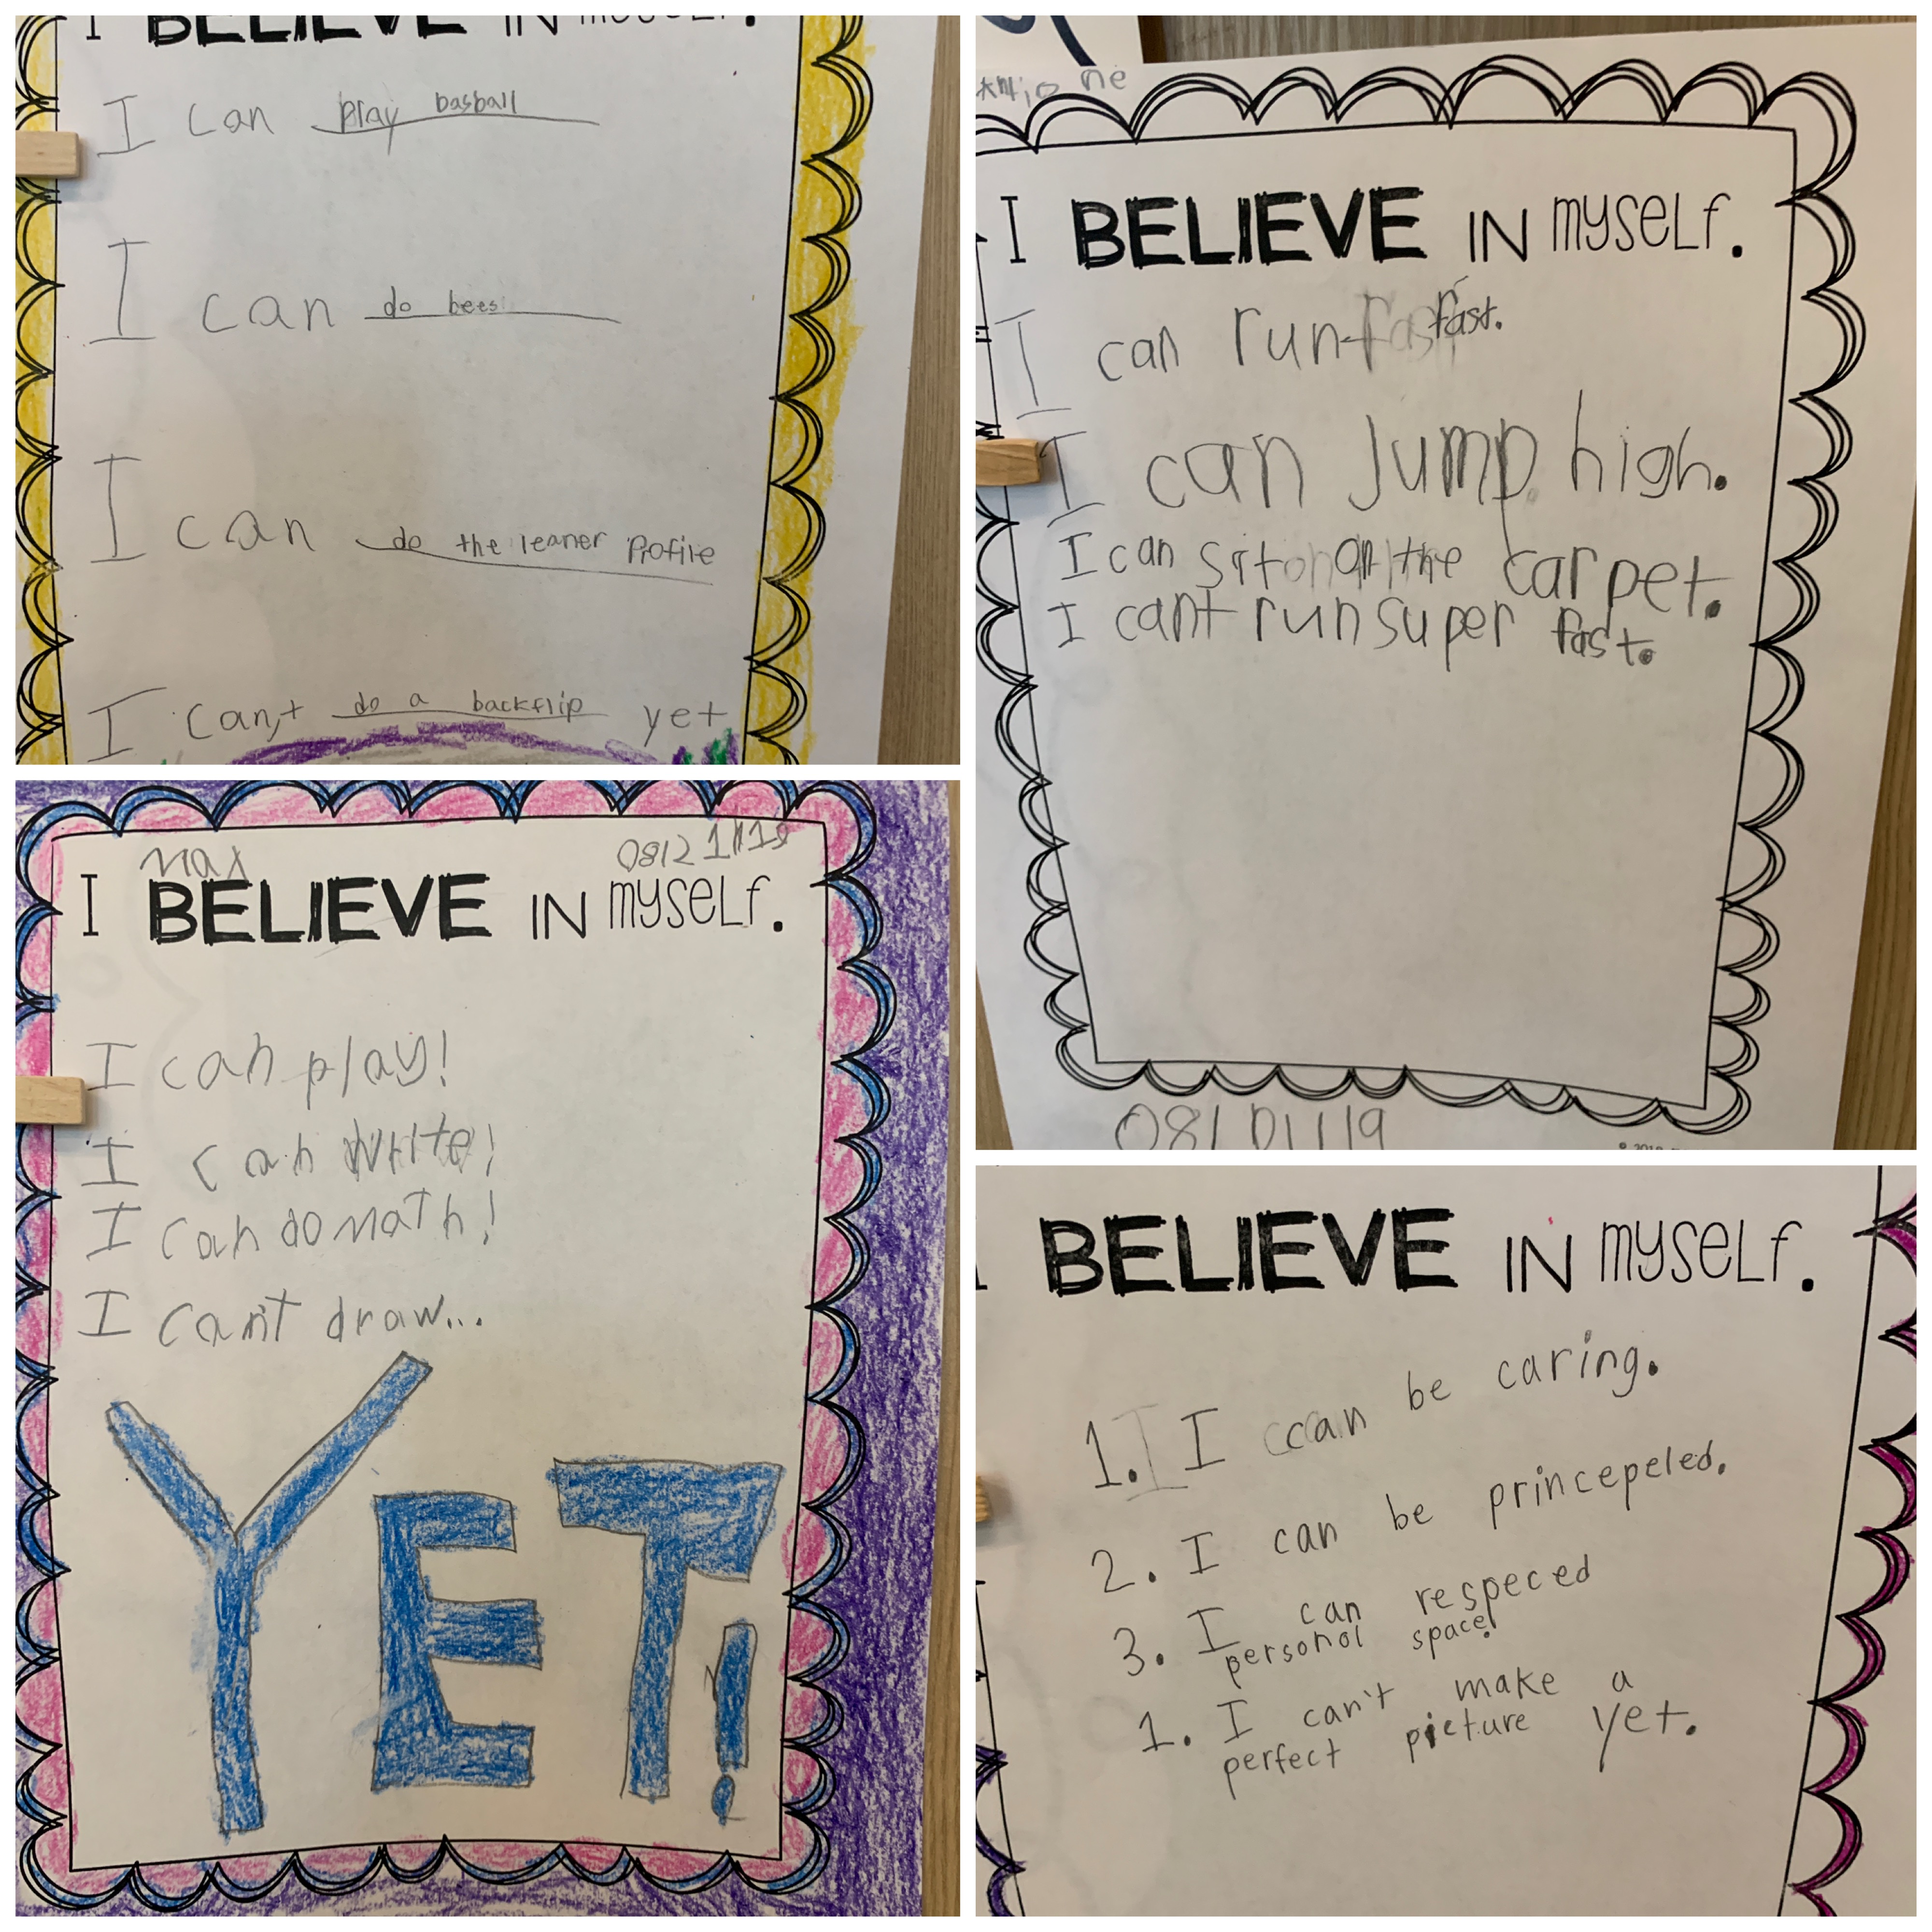 I BELIEVE IN myself.
I can play basball
I can do bees
I can do the leaner Profile
I can,t do a backflip yet
ne
I BELIEVE IN myself.
I can run fast.
I can Jump high.
I can sit on the carpet.
I cant run super fast.
08/01/19
Max
I BELIEVE IN myself.
I can play!
I can write!
I can do math!
I can't draw...
YET!
BELIEVE IN myself.
1. I can be caring.
2. I can be princepeled.
3. I can respeced
personal space!
1. I can't make a
perfect picture yet.